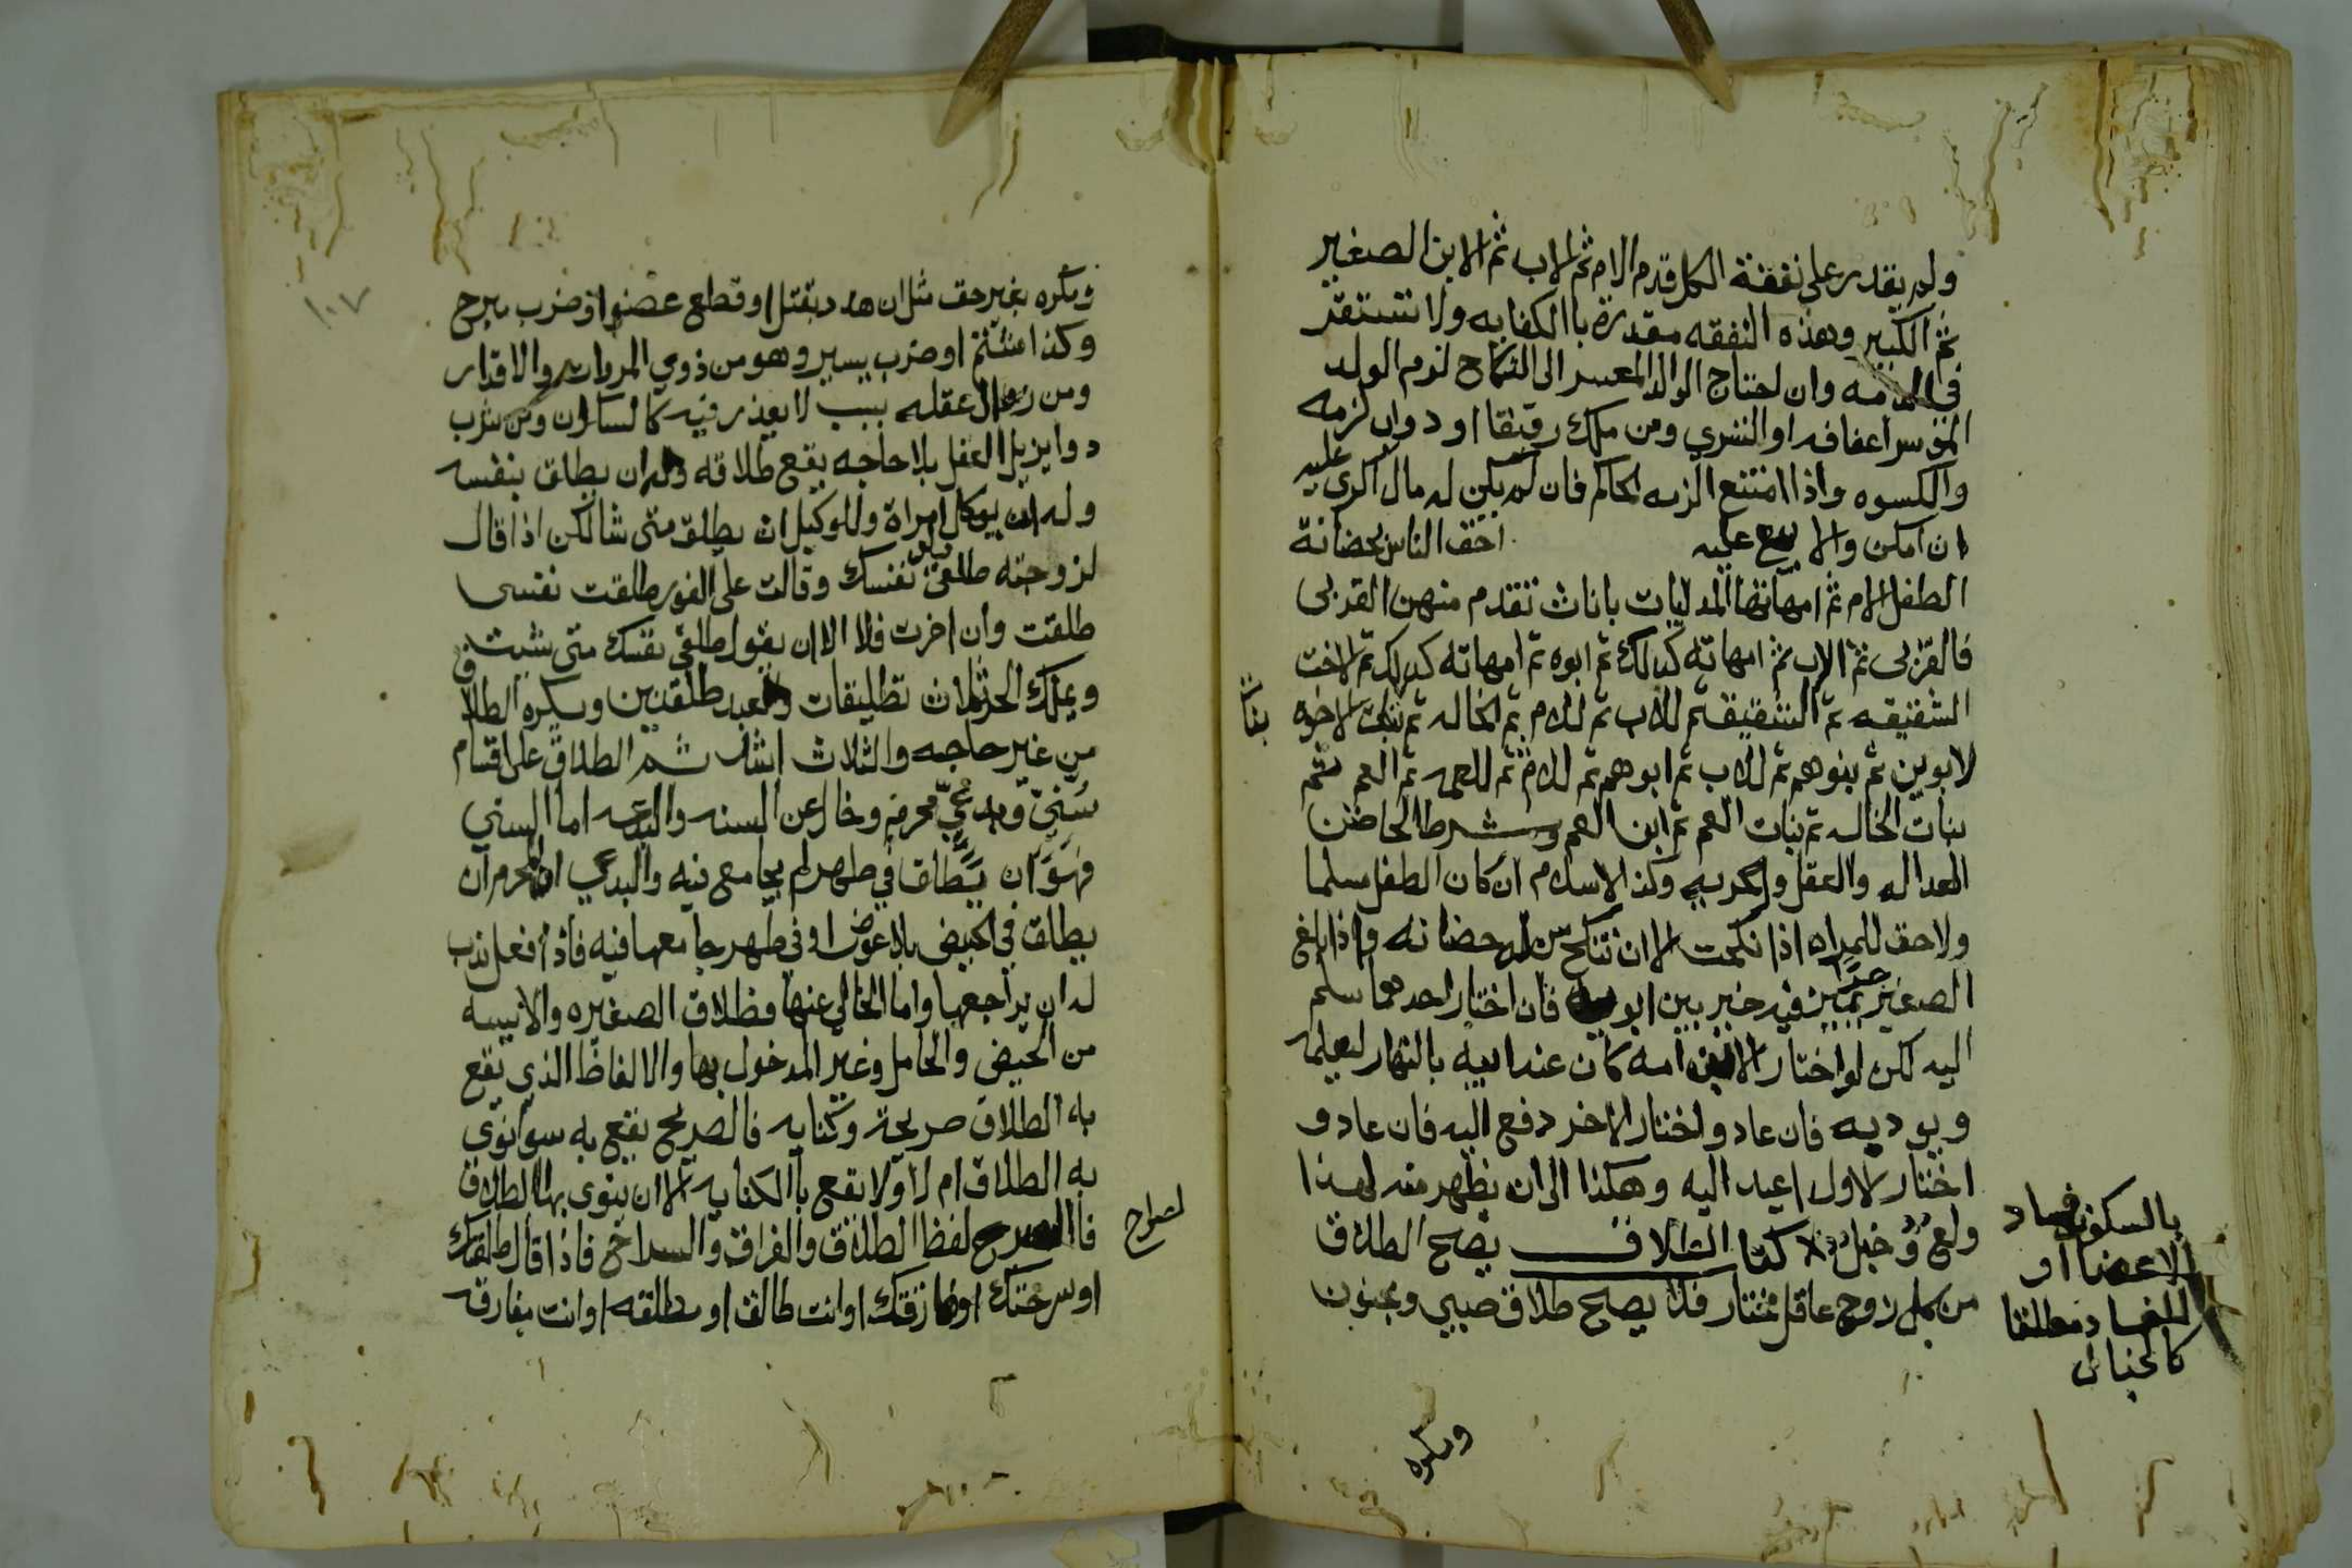 ولم يقدر على نفقة الكل قدم الام ثم الاب ثم الابن الصغير
ثم الكبير وهذه النفقه مقدرة باالكفايه ولا تستقر
في الذمه وان احتاج الوالد المعسر الى النكاح لزم الولد
الموسر اعفافه او التسري ومن ملك رقيقا او دواب لزمه
والكسوه واذا امتنع الزمه الحاكم فان لم يكن له مال اكرى عليه
ان امكن والا بيع عليه احق الناس بحضانة
الطفل الام ثم امهاتها المدليات باناث تقدم منهن القربى
فالقربى ثم الاب ثم امهاته كذلك ثم ابوه ثم امهاته كذلك ثم الاخت
الشقيقه ثم الشقيق ثم للاب ثم للام ثم الخاله ثم بنات الاخوه
بنات
لابوين ثم بنوهم ثم للاب ثم ابوهم ثم للام ثم للعمه ثم العم ثم
بنات الخاله ثم بنات العم ثم ابن العم وشرط الحاضن
العداله والعقل والحريه وكذا الاسلام ان كان الطفل مسلما
ولا حق للمراه اذا نكحت الا ان تنكح من له حضانه واذا بلغ
الصغير حدا يميز فيه خير بين ابويه فان اختار احدهما سلم
اليه لكن لو اختار الابن امه كان عند ابيه بالنهار ليعلمه
ويوديه فان عاد واختار الاخر دفع اليه فان عاد و
اختار الاول اعيد اليه وهكذا الى ان يظهر منه لهذا
ولع وخبل كتاب الطلاق يصح الطلاق
من كل زوج عاقل مختار فلا يصح طلاق صبي ومجنون
بالسكون فساد
الاعضا او
الفساد مطلقا
كالخبال
ومكره
١٠٧
ومكره بغير حق مثل ان هدد بقتل او قطع عضو او ضرب مبرح
وكذا شتم او ضرب يسير وهو من ذوي المروات والاقدار
ومن زال عقله بسبب لا يعذر فيه كالسكران ومن شرب
دوا يزيل العقل بلا حاجه يقع طلاقه وله ان يطلق بنفسه
وله ان يوكل امراة وللوكيل ان يطلق متى شا لكن اذا قال
لزوجته طلقي نفسك وقالت على الفور طلقت نفسى
طلقت وان اخرت فلا الا ان يقول طلقي نفسك متى شيت
ويملك الحر ثلاث تطليقات والعبد طلقتين ويكره الطلاق
من غير حاجه والثلاث اشد ثم الطلاق على اقسام
سني وبدعي محرم وخال عن السنه والبدعه اما السني
فهو ان يطلق في طهر لم يجامع فيه والبدعي المحرم ان
يطلق في الحيض بلا عوض او في طهر جامعها فيه فاذا فعل ندب
له ان يراجعها واما الخالي عنها فطلاق الصغيره والايسه
من الحيض والحامل وغير المدخول بها والالفاظ الذي يقع
به الطلاق صريحة وكنايه فالصريح يقع به سوا نوى
به الطلاق ام لا ولا يقع باالكنايه الا ان ينوى بها الطلاق
فاالصريح لفظ الطلاق والفراق والسراح فاذا قال طلقتك
او سرحتك او فارقتك او انت طالق او مطلقه او انت مفارقه